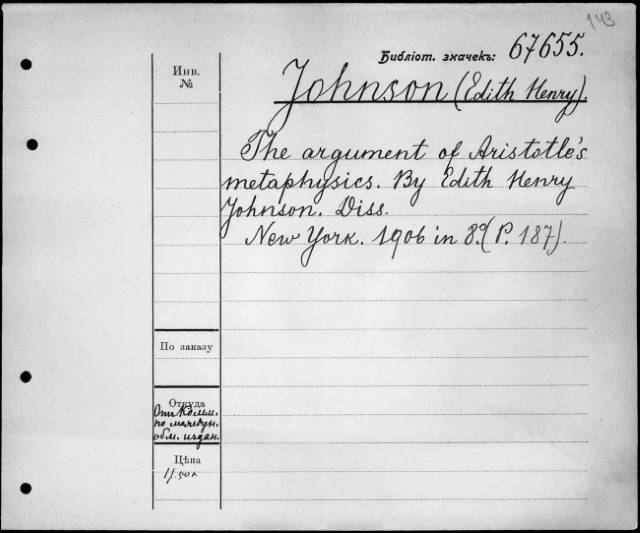 143
Библіот. значекъ: 67655.
Инв.
№
Johnson (Edith Henry).
The argument of Aristotle's
metaphysics. By Edith Henry
Johnson. Diss.
New York. 1906 in 8º (P. 187).
По заказу
Откуда
Отъ Комм.
по междун.
обм. издан.
Цѣна